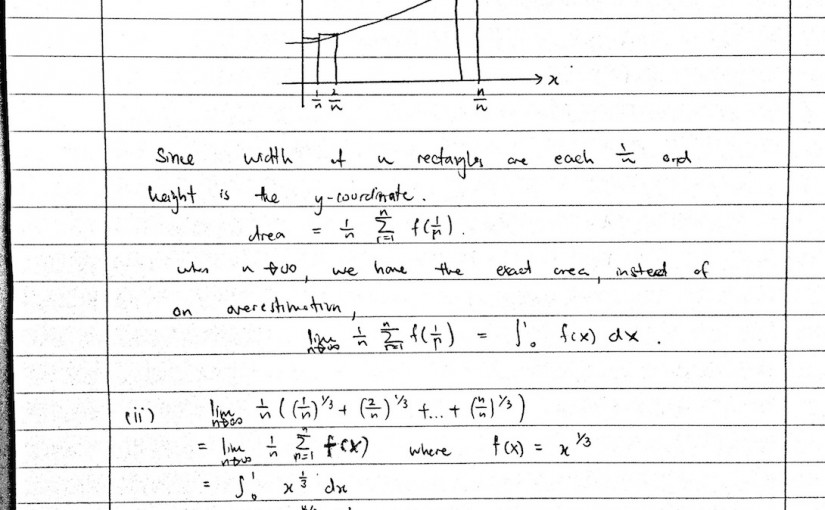 x
1/n 2/n n/n
Since width of n rectangles are each 1/n and
height is the y-coordinate.
area = 1/n Σ_{r=1}^{n} f(1/n).
when n→∞, we have the exact area, instead of
an overestimation,
lim_{n→∞} 1/n Σ_{r=1}^{n} f(1/n) = ∫₀¹ f(x) dx.
(ii) lim_{n→∞} 1/n ((1/n)^{1/3} + (2/n)^{1/3} +...+ (n/n)^{1/3})
= lim_{n→∞} 1/n Σ_{n=1}^{n} f(x) where f(x) = x^{1/3}
= ∫₀¹ x^{1/3} dx